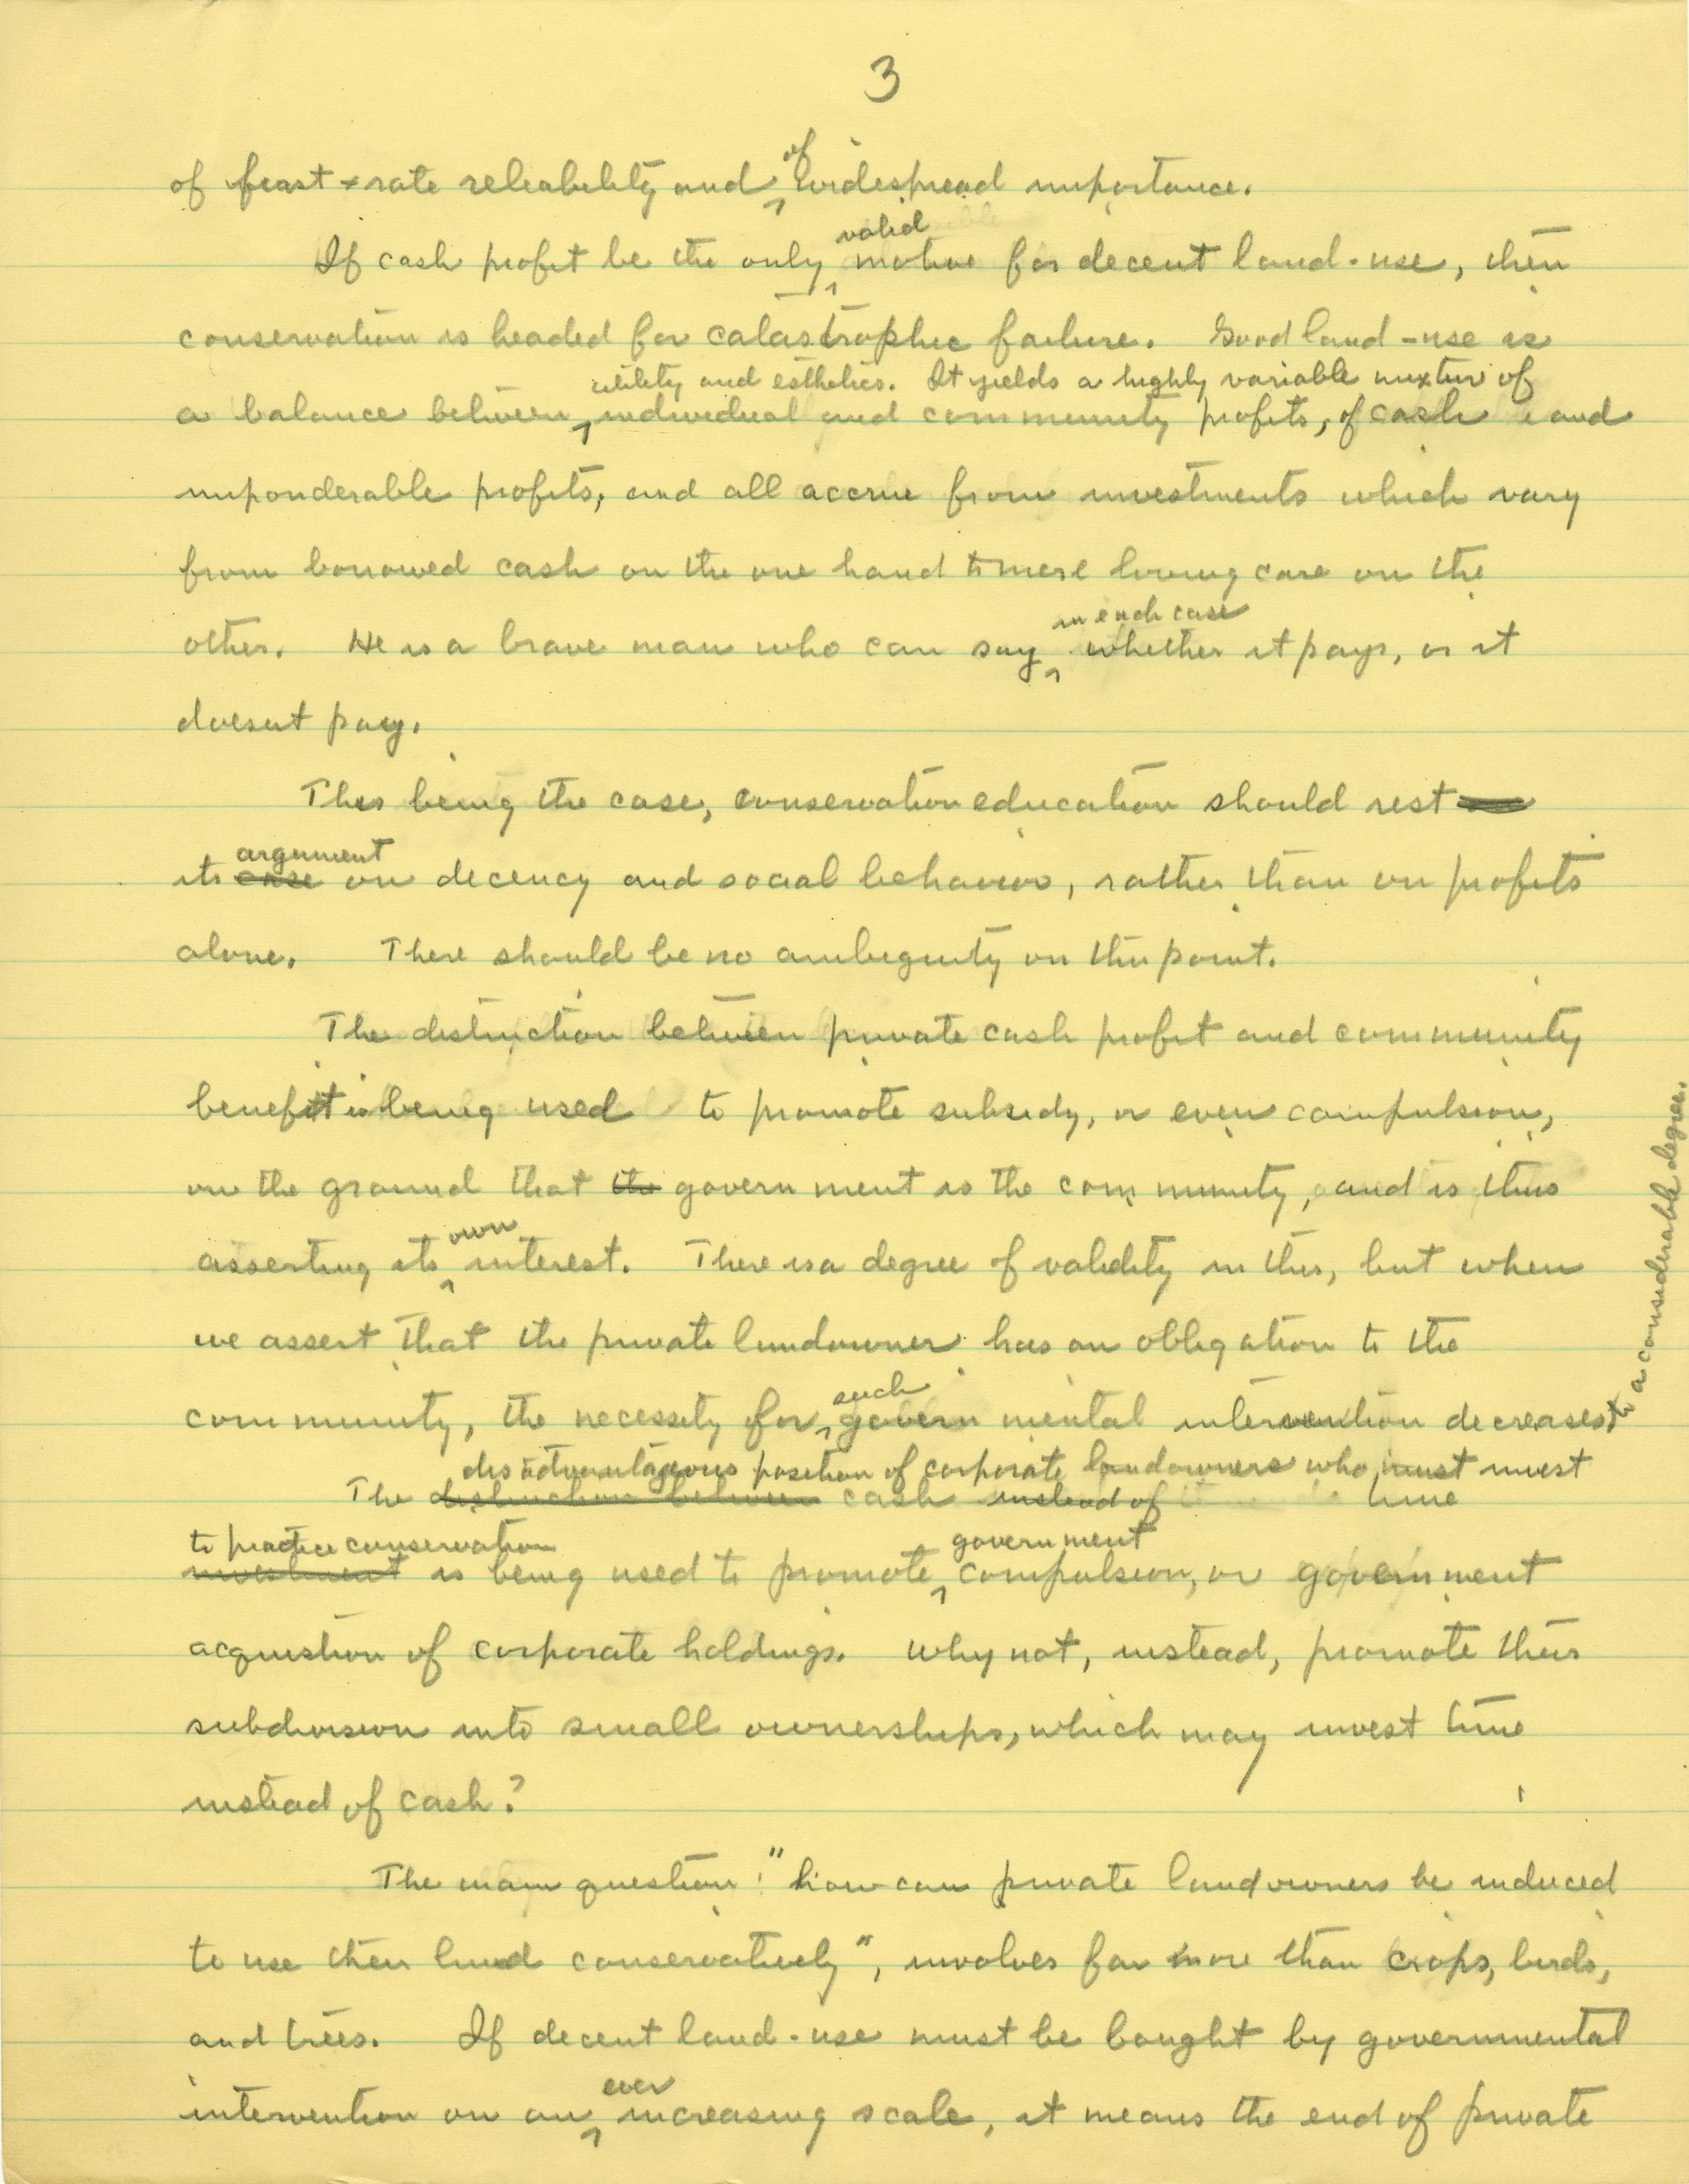 3
of first-rate reliability and of widespread importance.
If cash profit be the only valid motive for decent land-use, then
conservation is headed for catastrophic failure. Good land-use is
a balance between utility and esthetics. It yields a highly variable mixture of individual and community profits, of cash and
imponderable profits, and all accrue from investments which vary
from borrowed cash on the one hand to mere loving care on the
other. He is a brave man who can say in each case whether it pays, or it
doesnt pay.
This being the case, conservation education should rest
its case argument on decency and social behavior, rather than on profits
alone. There should be no ambiguity on this point.
The distinction between private cash profit and community
benefit is being used to promote subsidy, or even compulsion,
on the ground that the government is the community, and is thus
asserting its own interest. There is a degree of validity in this, but when
we assert that the private landowner has an obligation to the
community, the necessity for such governmental intervention decreases, to a considerable degree.
The distinction between disadvantageous position of corporate landowners who must invest cash instead of time
investment to practice conservation is being used to promote government compulsion, or government
acquistion of corporate holdings. Why not, instead, promote their
subdivision into small ownerships, which may invest time
instead of cash?
The main question: "how can private landowners be induced
to use their land conservatively", involves far more than crops, birds,
and trees. If decent land-use must be bought by governmental
intervention on an ever increasing scale, it means the end of private